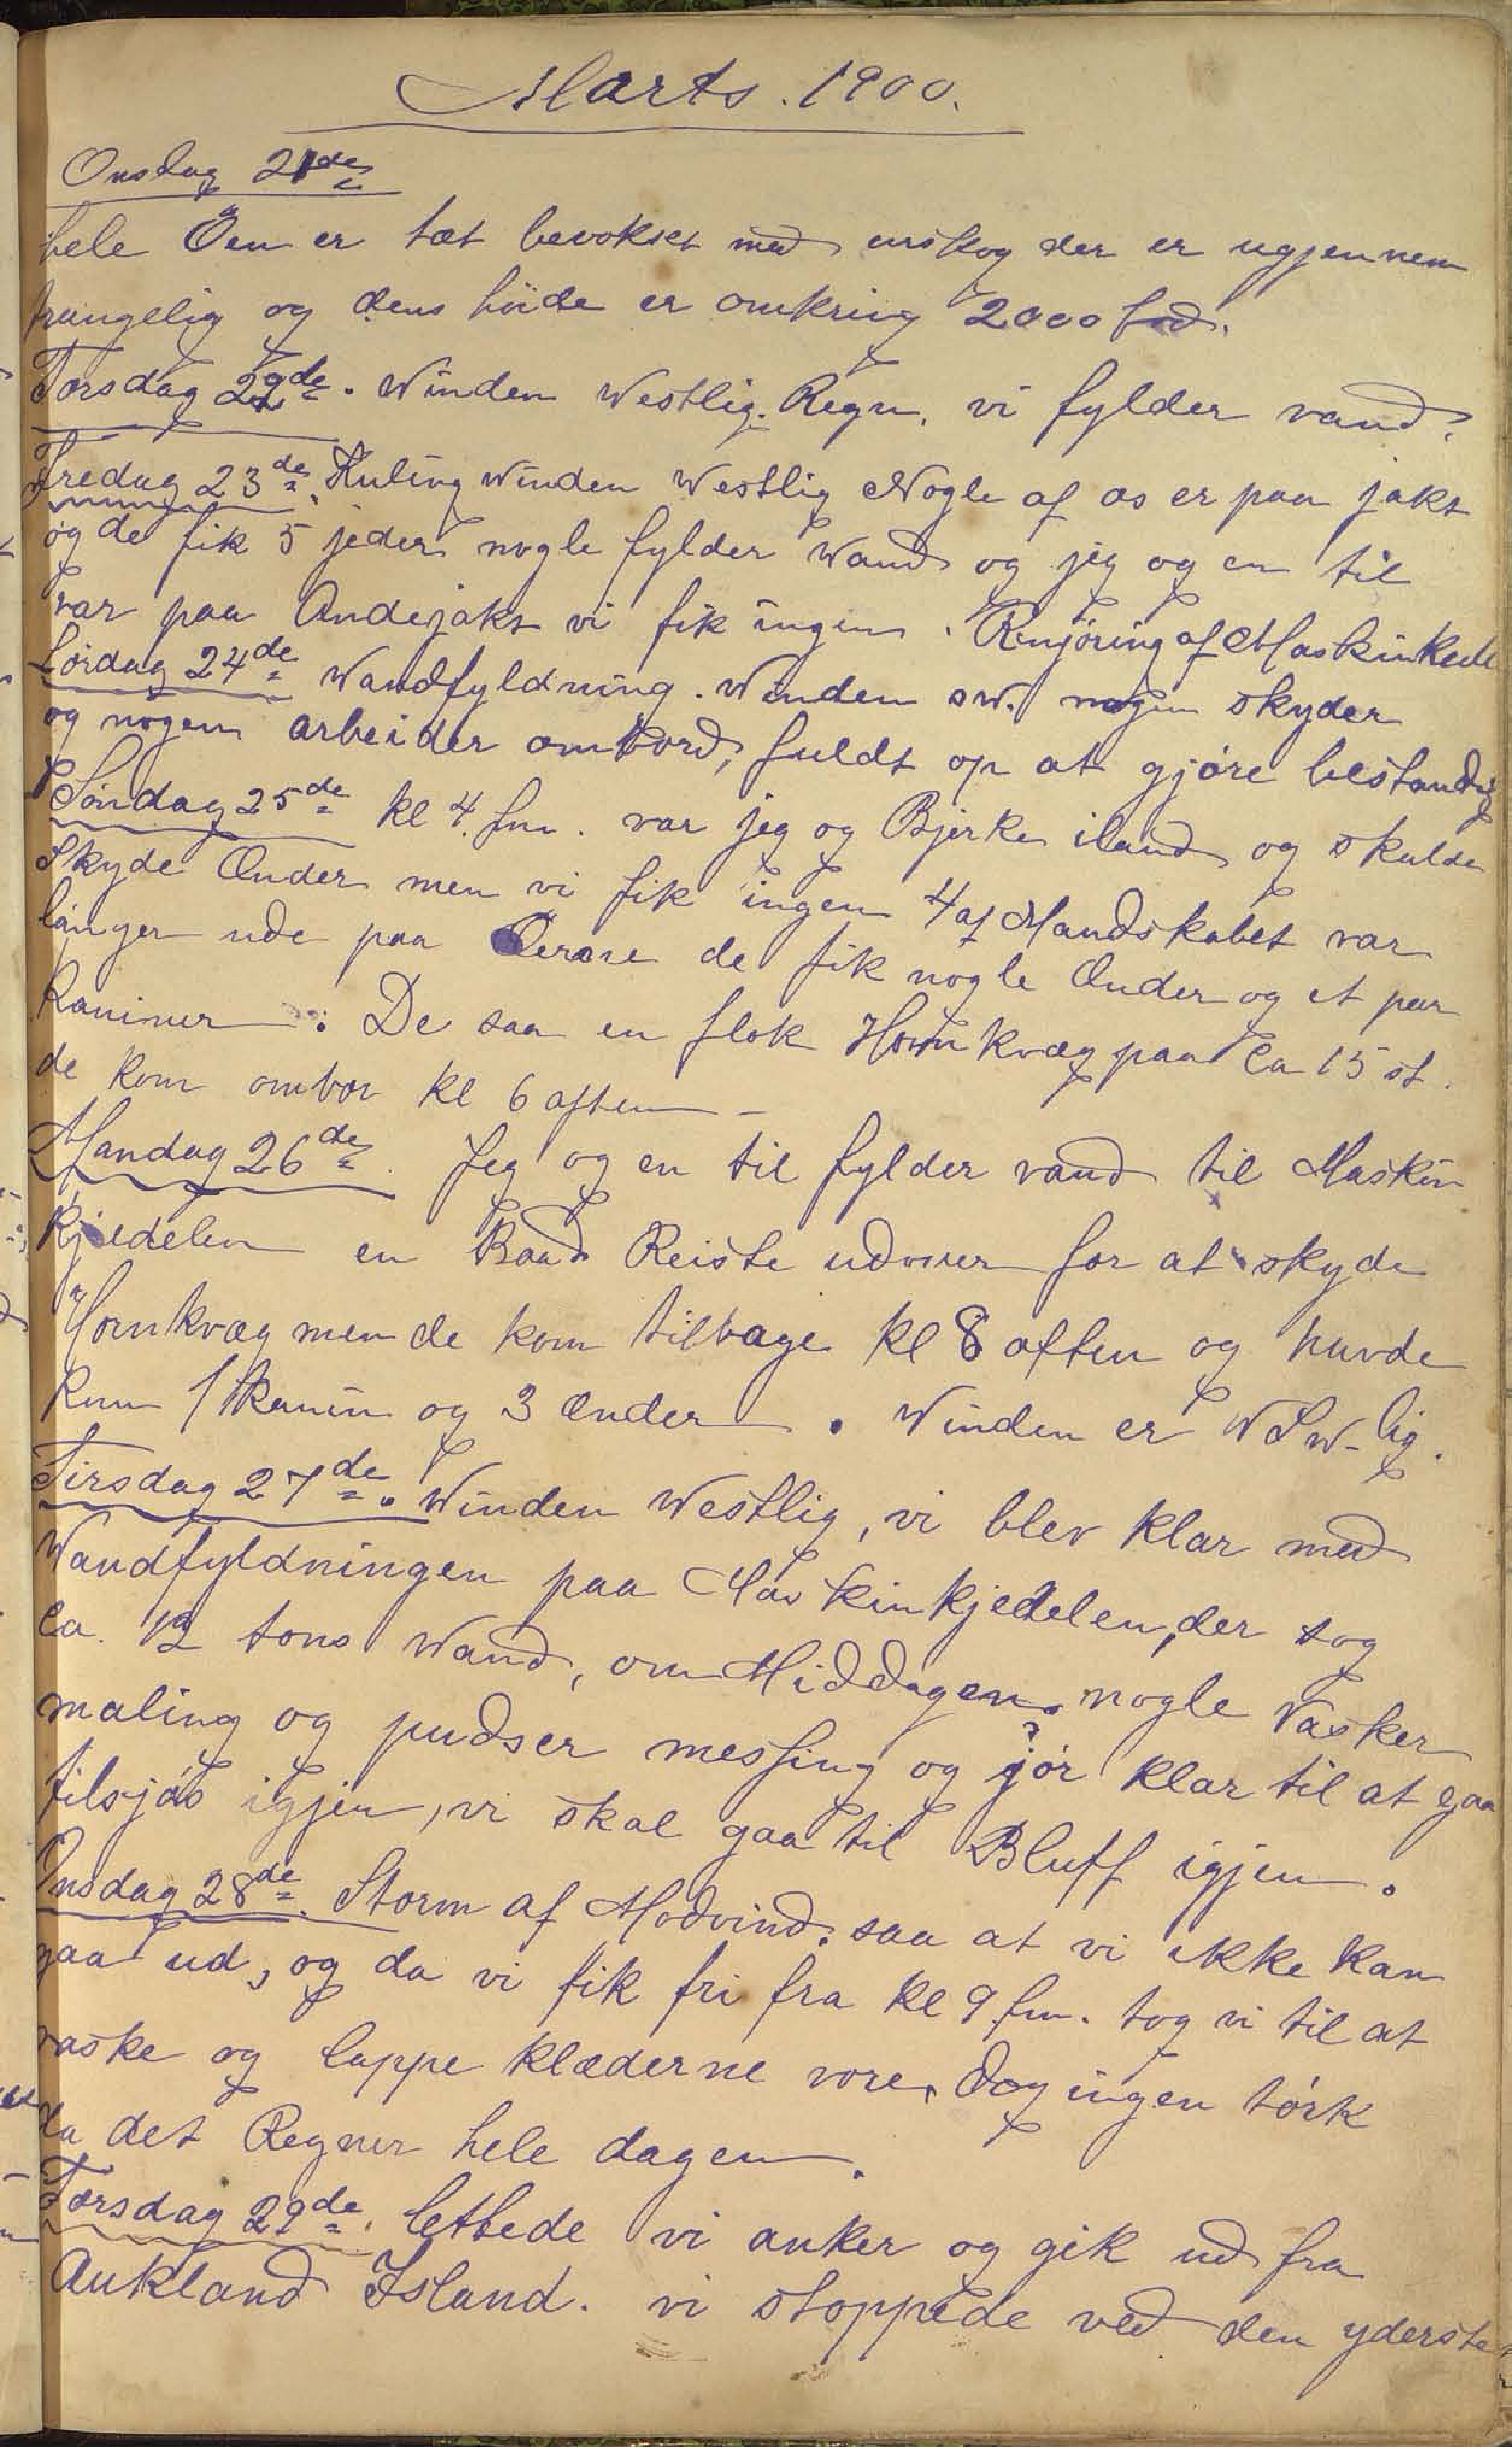 Marts. 1900.
Onsdag 21de
hele Öen er tæt bevokset med urskog der er ugjennem
trængelig og dens höide er omkring 2000 fod.
Torsdag 22de. Winden Westlig. Regn. vi fylder vand.
Fredag 23de. Kuling Winden Westlig Nogle af os er paa jakt
og de fik 5 jeder nogle fylder Wand og jeg og en til
var paa Andejakt vi fik ingen. Renjöring af Maskinkedl
Lördag 24de Wandfyldning. Winden sw. nogen skyder
og nogen arbeider ombord, fuldt op at gjöre bestandig
Söndag 25de kl 4. fm. var jeg og Bjerke iland og skulde
Skyde Ænder men vi fik ingen 4 af Mandskabet var
länger ude paa Öerne de fik nogle Ænder og et par
Kaniner. De saa en flok Hornkvæg paa Ca 15 st.
de kom ombor kl 6 aften —
Mandag 26de. Jeg og en til fylder vand til Maskin
Kjedelen en Baad Reiste udover for at skyde
Hornkvæg men de kom tilbage kl 8 aften og havde
kun 1 kanin og 3 ænder. Winden er WSW-lig.
Tirsdag 27de. Winden Westlig, vi blev klar med
Wandfyldningen paa Maskinkjedelen, der tog
Ca. 12 tons Wand, om Middagen. nogle vasker
maling og pudser messing og gjör klar til at gaa
tilsjös igjen, vi skal gaa til Bluff igjen.
Onsdag 28de. Storm af Modvind. saa at vi ikke kan
gaa ud, og da vi fik fri fra kl 9 fm. tog vi til at
vaske og lappe klæderne vore, dog ingen törk
da det Regner hele dagen.
Torsdag 29de. lettede vi anker og gik ud fra
Aukland Island. vi stoppede ved den yderste